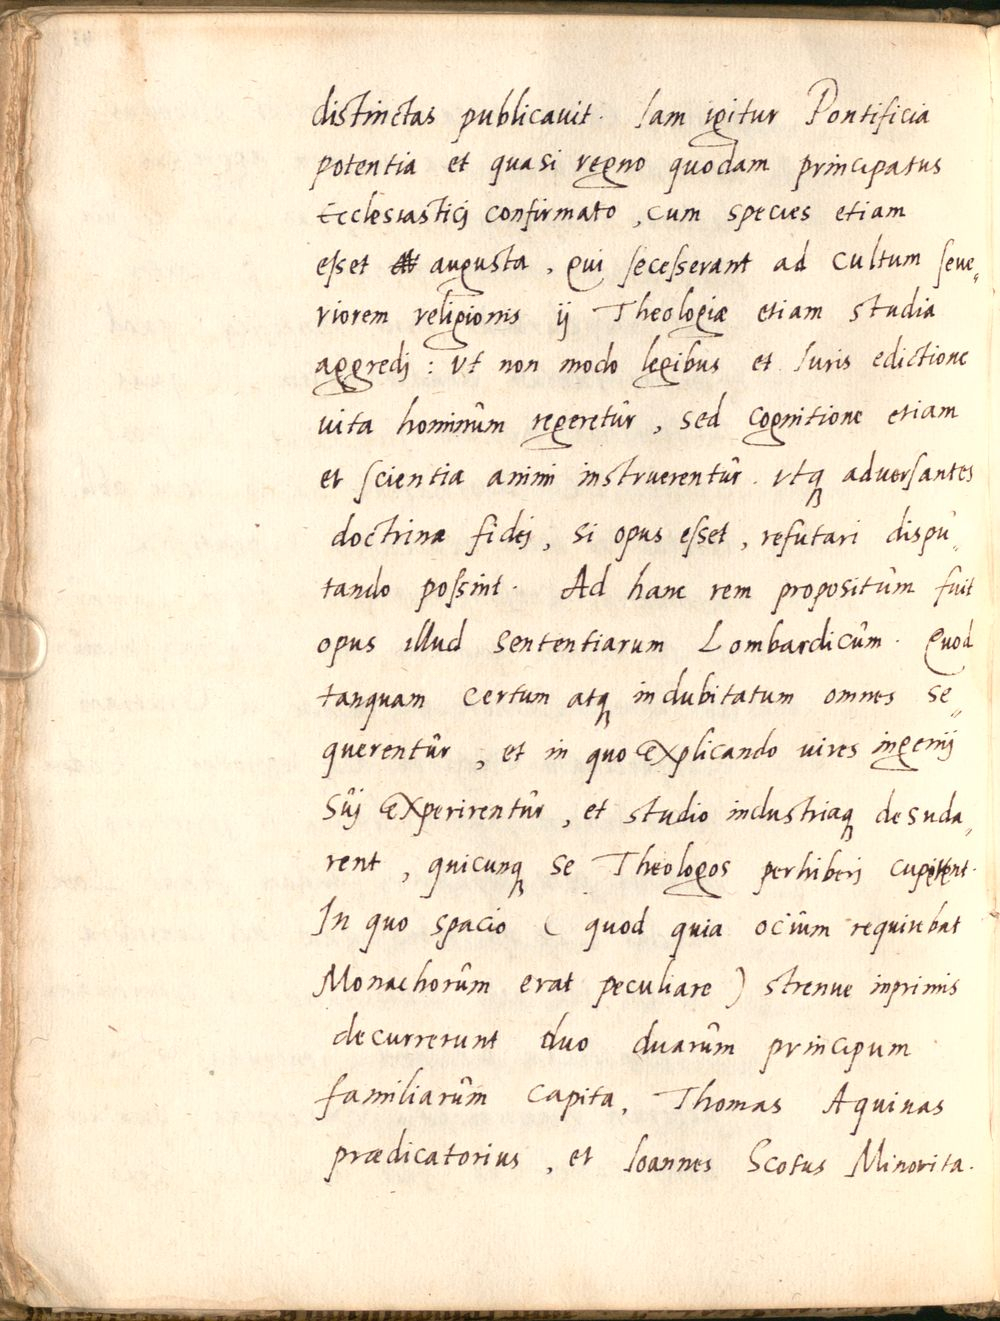 distinctas publicavit. Iam igitur Pontificia
potentia et quasi regno quodam principatus
Ecclesiasticj confirmato, cum species etiam
eſset augusta. Qui ſeceſserant ad cultum ſeue„
riorem religionis ij Theologiæ etiam studia
aggredj: vt non modo legibus et Iuris edictione
vita hominûm regeretûr, sed cognitione etiam
et ſcientia animi instruerentûr. vtq́ aduerſantes
doctrinæ fidej, si opus eſset, refutari dispû„
tando poſsint. Ad hanc rem propositûm fuit
opus illud Sententiarum Lombardicûm. Quod
tanquam certum atq́ indubitatum omnes se„
querentûr, et in quo explicando vires ingenij
sûj experirentûr, et studio industriaq́ desuda„
rent, quicunq́ se Theologos perhiberj
In quo spacio ( quod quia ociûm requirebat
Monachorûm erat peculiare ) strenue inprimis
decurrerunt duo duarûm principum
familiarûm capita, Thomas Aquinas
prædicatorius, et Ioannes Scotus Minorita.